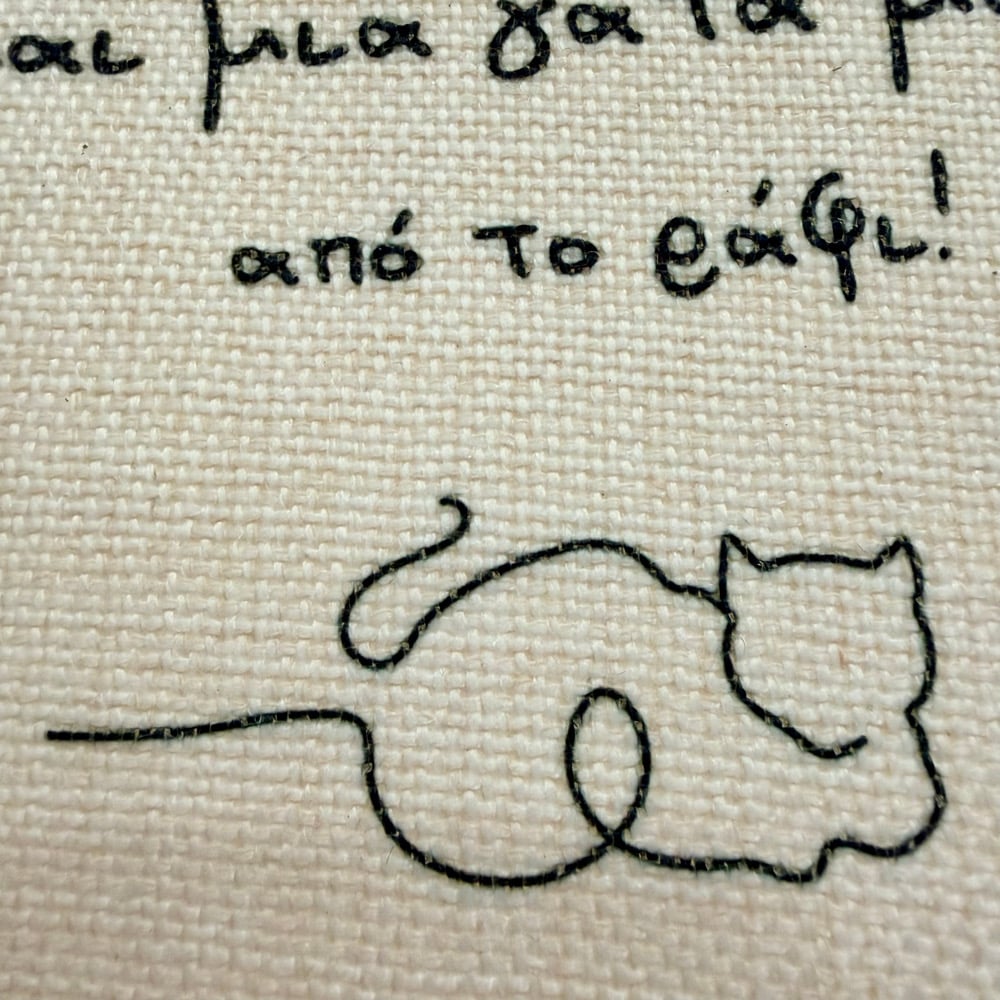 μια γάτα
από το ράφι!